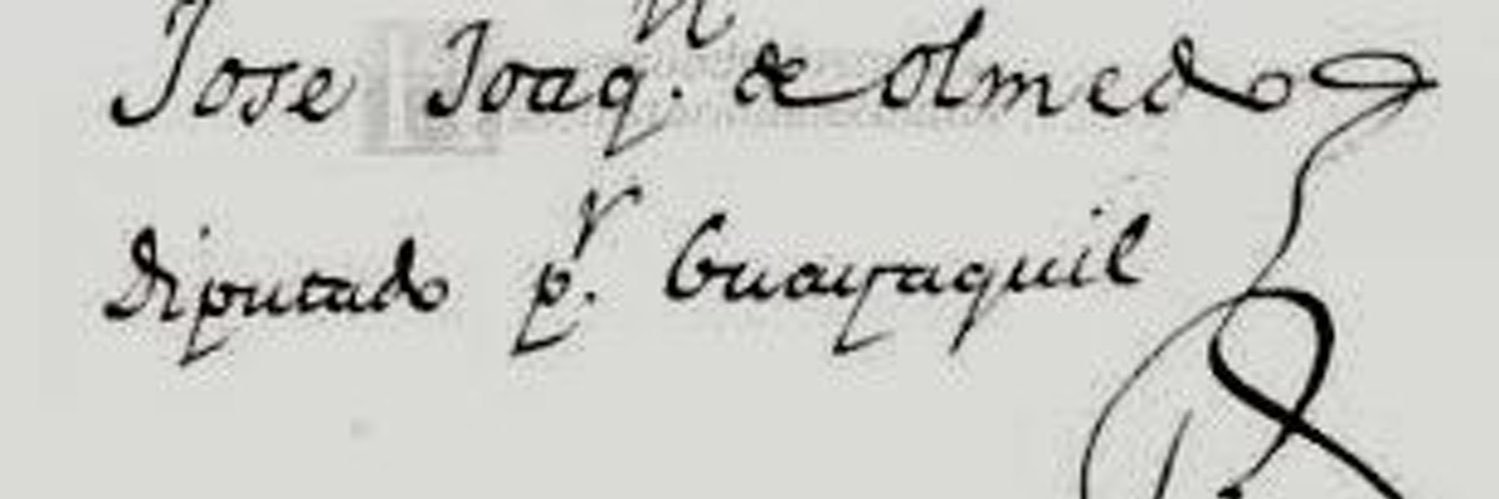 Jose Joaqn. de Olmedo
Diputado pr. Guayaquil